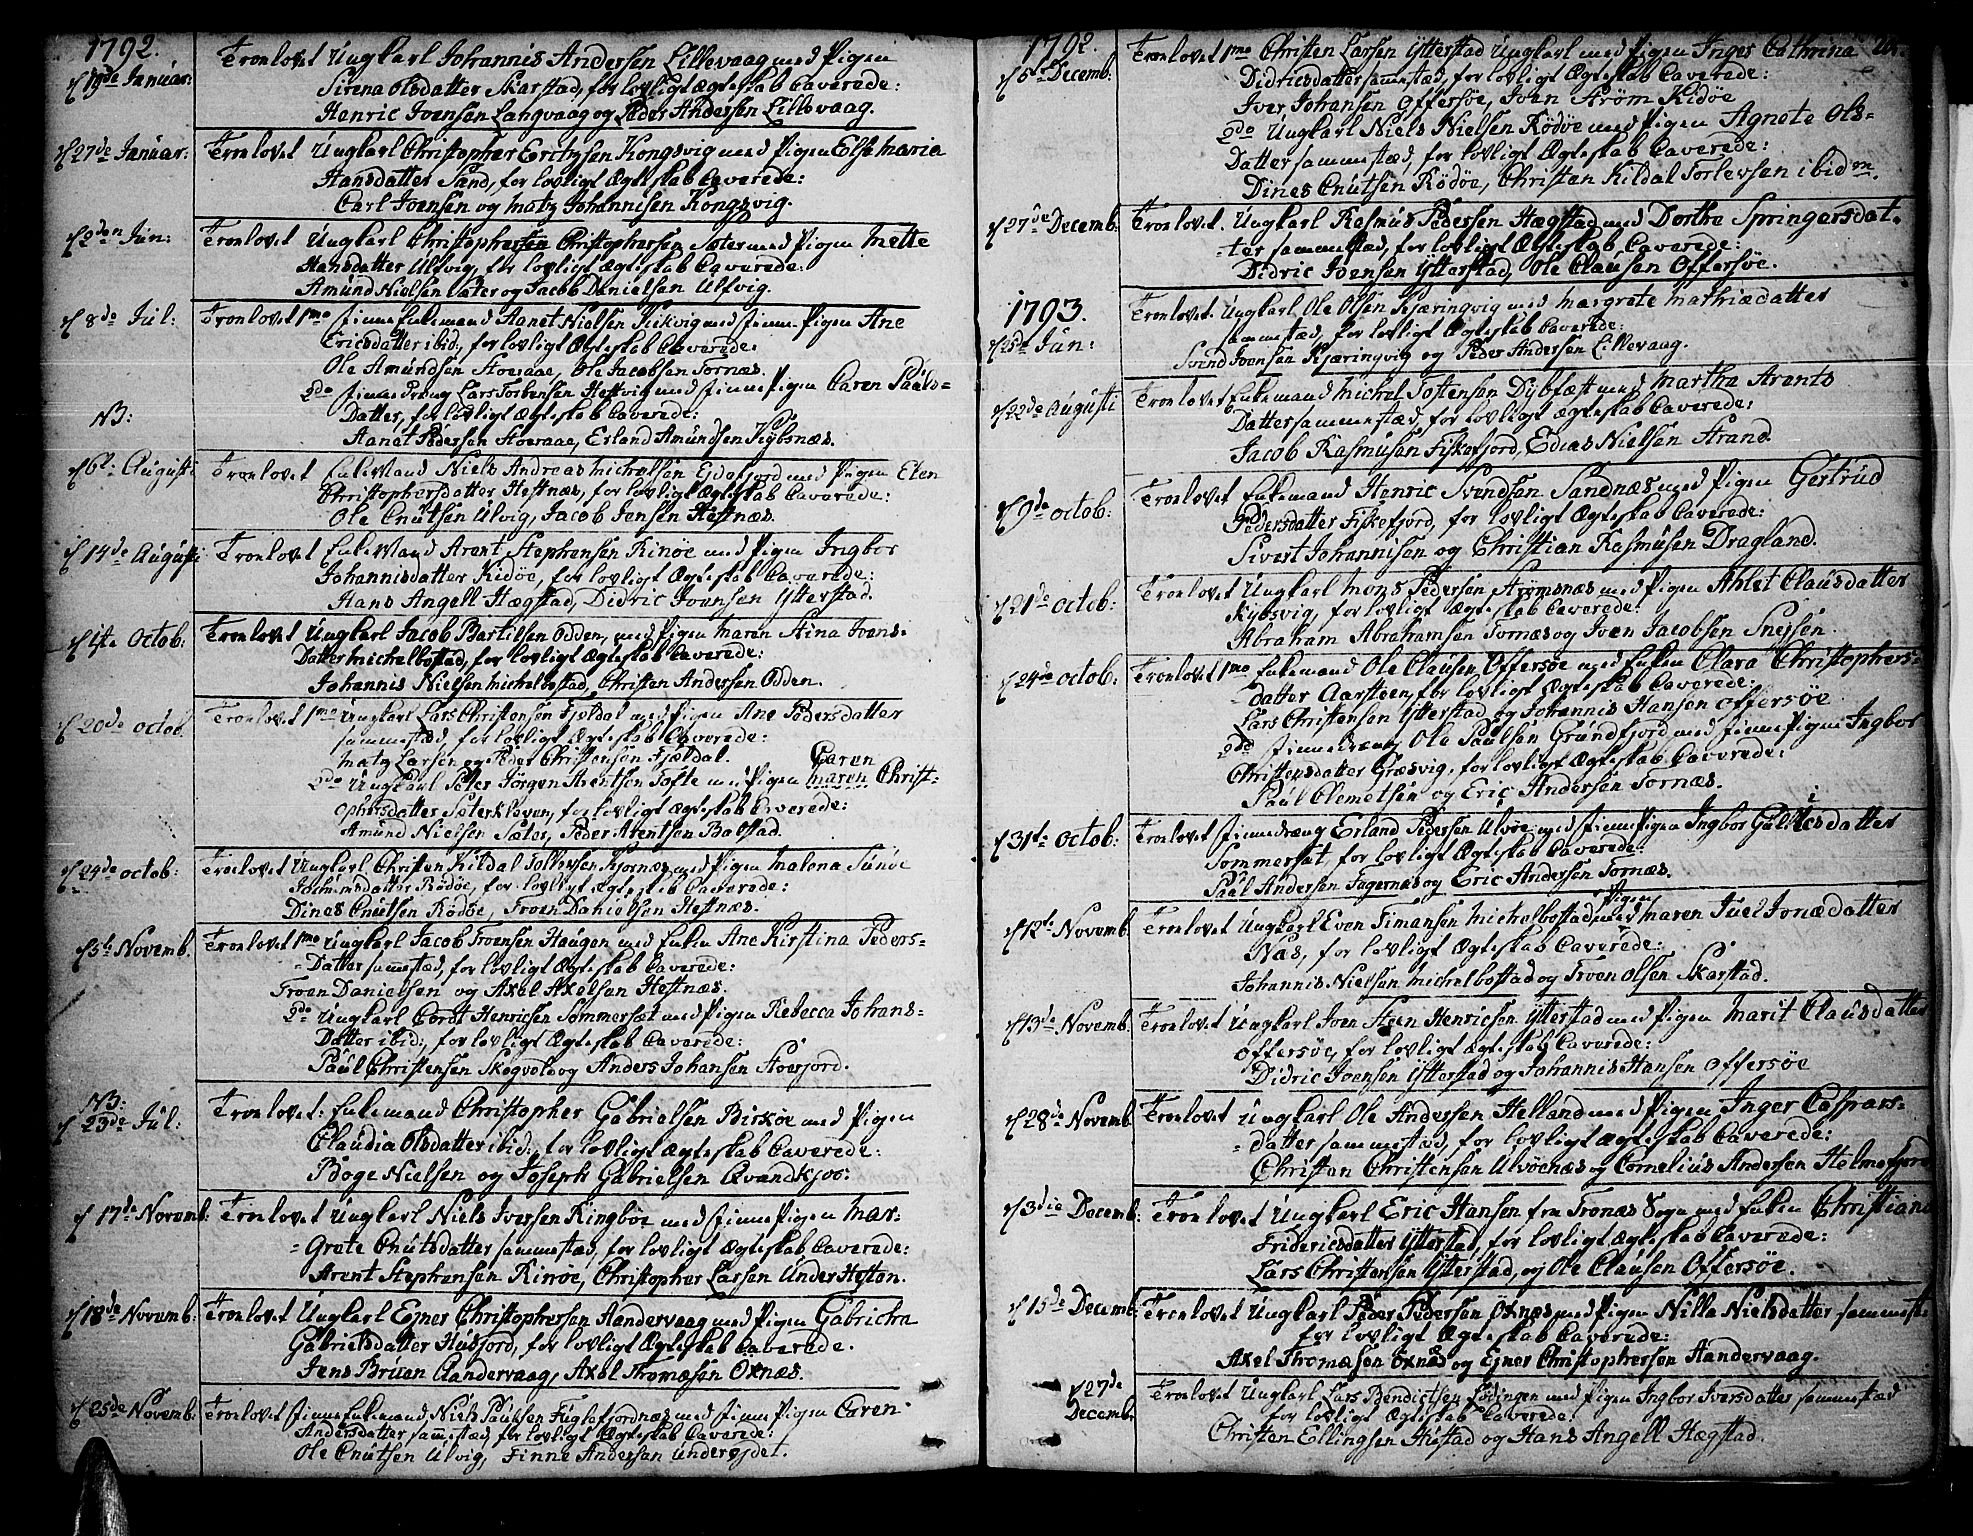 1792.
d 19de Januar: Tronlovet Ungkarl Johannis Andersen Lillevaag med Pigen
Sirena Olsdatter Skarstad, for lovligt Ægteskab Caverede:
Henric Ivensen Langvaag og Peder Andersen Lillevaag.
d 27de Januar: Tronlovet Ungkarl Christopher Erichsen Kongsvig med Pigen Else Maria
Hansdatter Sand, for lovligt Ægteskab Caverede:
Carl Joensen og Matz Johannisen Kongsvig.
d 2den Jun: Tronlovet Ungkarl Christopher Christophersen Sæter med Pigen Mette
Hansdatter Ulfvig, for lovligt Ægteskab Caverede:
Amund Nielsen Sæter og Jacob Danielsen Ulfvig.
d 8de Jul: Tronlovet 1mo Finne Enkemand Aanet Nielsen med Finne-Pigen Ane
Ericsdatter ibid, for lovligt Ægteskab Caverede:
Ole Amundsen Stoeraae, Ole Jacobsen Tornæs.
2do Finnedreng Lars Torbensen med Finne Pigen Caren Pauls-
NB: Datter, for lovligt Ægteskab Caverede:
Aanet Pedersen Stoeraae, Erland Amundsen Kybsnæs.
d 6te Augusti Tronlovet Enkemand Niels Andreas Michelsen Ejdefjord med Pigen Elen
Christophersdatter Hestnæs, for lovligt Ægteskab Caverede:
Ole Cnutsen Ulvig, Jacob Jensen Hestnæs.
d 14de Augusti Tronlovet Enkemand Arent Stephensen Rinøe med Pigen Ingbor
Johannisdatter Kidøe, for lovligt Ægteskab Caverede:
Hans Angell Hægstad, Didric Ivensen Ytterstad.
d 1ste Octob: Tronlovet Ungkarl Jacob Bartilsen Odden, med Pigen Maren Stina Ivens-
Datter Michelbostad, for lovligt Ægteskab Caverede:
Johannis Nielsen Michelbostad, Christen Andersen Odden.
d 20de Octob. Tronlovet 1mo Ungkarl Lars Christensen Fjeldal med Pigen Ane Pedersdatter
sammestæd, for lovligt Ægteskab Caverede:
Matz Larsen og Peder Christensen Fjeldal. Caren
2do Ungkarl Peter Jørgen Arentsen Tofte med Pigen Maren Christ-
ophersdatter Sæterkleven, for lovligt Ægteskab Caverede:
Amund Nielsen Sæter, Peder Arentsen Balstad.
d 24de Octob: Tronlovet Ungkarl Christen Kildal Tollevsen Kjørnæs med Pigen Malena Sunde
Jochimsdatter Rødøe, for lovligt Ægteskab Caverede:
Dines Cnutsen Rødøe, Troen Danielsen Hestnæs.
d 5te Novemb. Tronlovet 1mo Ungkarl Jacob Troensen Haugen med Enken Ane Kirstina Peders-
Datter sammestæd, for lovligt Ægteskab Caverede:
Troen Danielsen og Axel Axelsen Hestnæs.
2do Ungkarl Cordt Henricsen Sommersæt med Pigen Rebecca Johans-
Datter ibid:, for lovligt Ægteskab Caverede:
Paul Christensen Skogvold og Anders Johansen Stoerjord.
NB:
d 23de Jul: Tronlovet: Enkemand Christopher Gabrielsen Birkøe med Pigen
Claudia Olsdatter ibid:, for lovligt Ægteskab Caverede:
Boge Nielsen og Joseph Gabrielsen Qvandkjos:
d 17de Novemb: Tronlovet Ungkarl Niels Iversen Ringbøe med Finne Pigen Mar-
Grete Cnutsdatter sammestæd, for lovligt Ægteskab Caverede:
Arent Stephensen Rinøe, Christopher Larsen Under Hesten.
d 18de Novemb: Tronlovet Ungkarl Ejner Christophersen Sandervaag med Pigen Gabricha
Gabrielsdatter Husfjord, for lovligt Ægteskab Caverede.
Jens Bruun Sandervaag, Axel Thomæsen Öxnæs.
d 25de Novemb: Tronlovet Finne Enkemand Niels Paulsen Fuglefjordnæs med Finne Pigen Caren
Andersdatter sammestæd, for lovligt Ægteskab Caverede:
Ole Cnutsen Ulvig, Finne Andersen Undereydet.
1792.
d 6te Decemb: Tronlovet 1mo Christen Larsen Ytterstad Ungkarl med Pigen Inger Cathrina
Didricsdatter sammestæd, for lovligt Ægteskab Caverede:
Iver Johansen Offersøe, Iven Strøm Kidøe
2do Ungkarl Niels Nielsen Rødøe med Pigen Agnete Ols-
Datter sammestæd, for lovligt Ægteskab Caverede:
Dines Cnutsen Rödöe, Christen Kildal Torlevsen ibidem.
d 27de Decemb. Tronlovet. Ungkarl Rasmus Pedersen Hægstad med Dorthe Springersdat-
ter sammestæd, for lovligt Ægteskab Caverede:
Didric Ivensen Ytterstad, Ole Clausen Offersøe.
1793.
d 25de Jun: Tronlovet. Ungkarl Ole Olsen Kjæringvig med Margrete Mathiædatter
sammestæd, for lovligt Ægteskab Caverede:
Svend Ivensen Kjæringvig og Peder Andersen Lillevaag.
d 22de Augusti Tronlovet Enkemand Michel Tostensen Dybfæst med Martha Arents
Datter sammestæd, for lovligt Ægteskab Caverede:
Jacob Rasmusen Fiskefjord, Edias Nielsen Strand.
d 9de Octob: Tronlovet Enkemand Henric Svendsen Sandnæs med Pigen Gertrud
Pedersdatter Fiskefjord, for lovligt Ægteskab Caverede:
Sivert Johannisen og Christian Rasmusen Dragland.
d 21de Octob: Tronlovet Ungkarl Mons Pedersen Strømsnæs med Pigen Ahlet Clausdatter
Kybsvig, for lovligt Ægteskab Caverede:
Abraham Abrahamsen Tornæs og Iven Jacobsen Snejsen.
d 24de Octob: Tronlovet 1mo Enkemand Ole Clausen Offersøe med Enken Clara Christophers-
datter Aarsteen, for lovligt Ægteskab Caverede:
Lars Christensen Ytterstad og Johannis Hansen Offersøe
2do Finnedreng Ole Paulsen Grundfjord med Finne Pigen Ingbor
Christensdatter Græsvig, for lovligt Ægteskab Caverede:
Paul Clemetsen og Eric Andersen Tornæs.
d 31te Octob: Tronlovet Finnedreng Erland Pedersen Ulvøe med Finne Pigen Ingbor datter
Sommersæt, for lovligt Ægteskab Caverede:
Paul Andersen Fagernæs og Eric Andersen Tornæs.
d 12te Novemb. Tronlovet Ungkarl Even Timansen Michelbostad med Pigen Maren Juel Jonædatter
Næs, for lovligt Ægteskab Caverede:
Johannis Nielsen Michelbostad og Troen Olsen Skarstad.
d 13de Novemb. Tronlovet Ungkarl Iven Steen Henricsen Ytterstad med Pigen Marit Clausdatter
Offersøe, for lovligt Ægteskab Caverede:
Didric Ivensen Ytterstad og Johannis Hansen Offersøe
d 28de Novemb Tronlovet Ungkarl Ole Andersen Helland med Pigen Inger Caspars-
datter sammestæd, for lovligt Ægteskab Caverede:
Christen Christensen Ulvöenæs og Cornelius Andersen Helmefjord
d 3die Decemb: Tronlovet Ungkarl Eric Hansen fra Tronæs Sogn med Enken Christiana
Fridericsdatter Ytterstad, for lovligt Ægteskab Caverede:
Lars Christensen Ytterstad, og Ole Clausen Offersøe.
d 15de Decemb: Tronlovet Ungkarl Peder Pedersen Öxnæs med Pigen Nilla Nielsdatter sammeste
for lovligt Ægteskab Caverede:
Axel Thomæsen Öxnæs og Ejner Christophersen Sandervaag.
d 27de Decemb. Tronlovet Ungkarl Lars Bendictsen Lödingen med Pigen Ingbor Iversdatter sammestæd
for lovligt Ægteskab Caverede:
Christen Ellingsen Hustad og Hans Angell Hægstad.